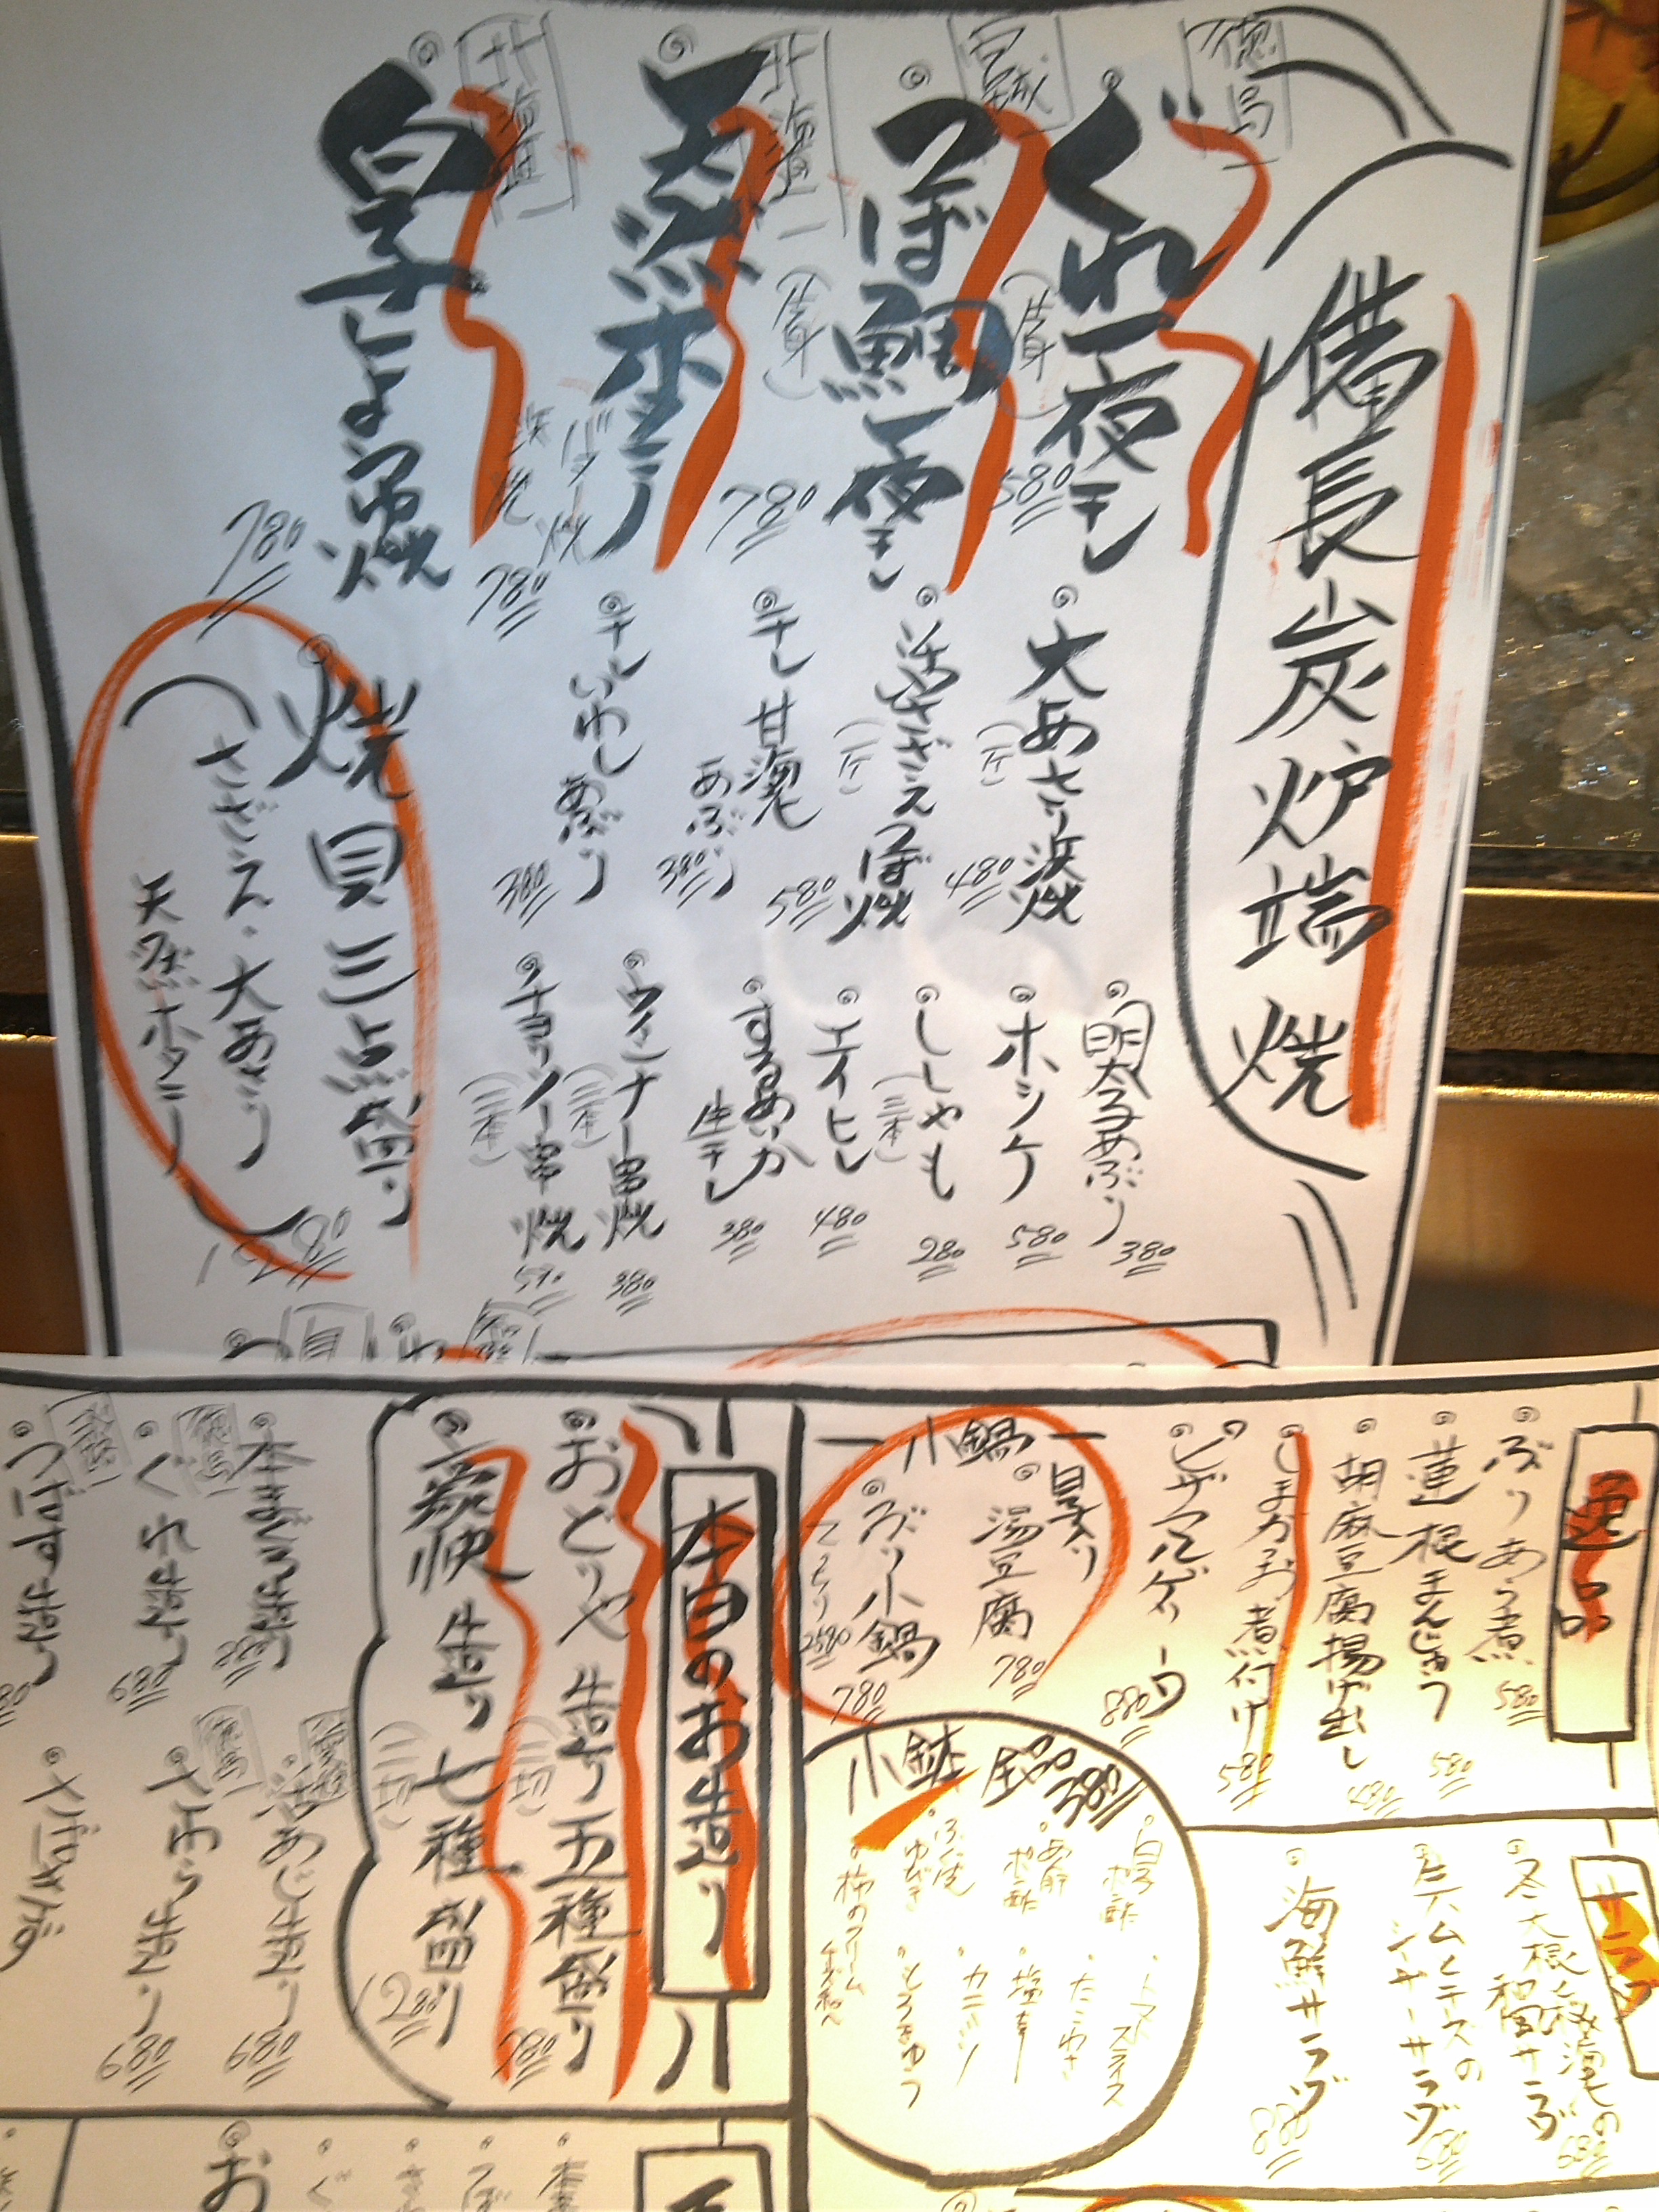 備長炭炉端焼
徳島
ぐれ一夜干し
(片身)
580
宮城
つぼ鯛一夜干し
(片身)
780
北海道
天然ホタテ
バター焼
浜焼
780
北海道
白子しょう油焼
780
大あさり浜焼
(一ケ)
480
活さざえつぼ焼
(一ケ)
580
干し甘海老
あぶり
380
干しいわし
あぶり
380
明太子あぶり
380
ホッケ
580
ししゃも
(三本)
280
エイヒレ
480
するめいか
生干し
380
ウインナー串焼
(二本)
380
チョリソー串焼
(二本)
焼貝三点盛り
(さざえ・大あさり
天然ホタテ)
1280
逸品
ぶりあら煮
580
蓮根まんじゅう
580
胡麻豆腐揚げ出し
しまがつお煮付け
580
880
小鍋
白子入り
湯豆腐
780
ぶり小鍋
780
小鉢 全品380
白子
ポン酢
あん肝
ポン酢
ふぐ皮
ゆびき
柿のクリーム
チーズ和え
トマト
スライス
たこわさ
塩辛
カニミソ
サラダ
冬大根と桜海老の
和風サラダ
680
生ハムとチーズの
シーザーサラダ
680
海鮮サラダ
880
本日のお造り
おどりや造り五種盛り
(二切)
980
豪快造り七種盛り
(二切)
1280
本まぐろ造り
徳島
ぐれ造り
680
つばす造り
活あじ造り
680
徳島
680
お